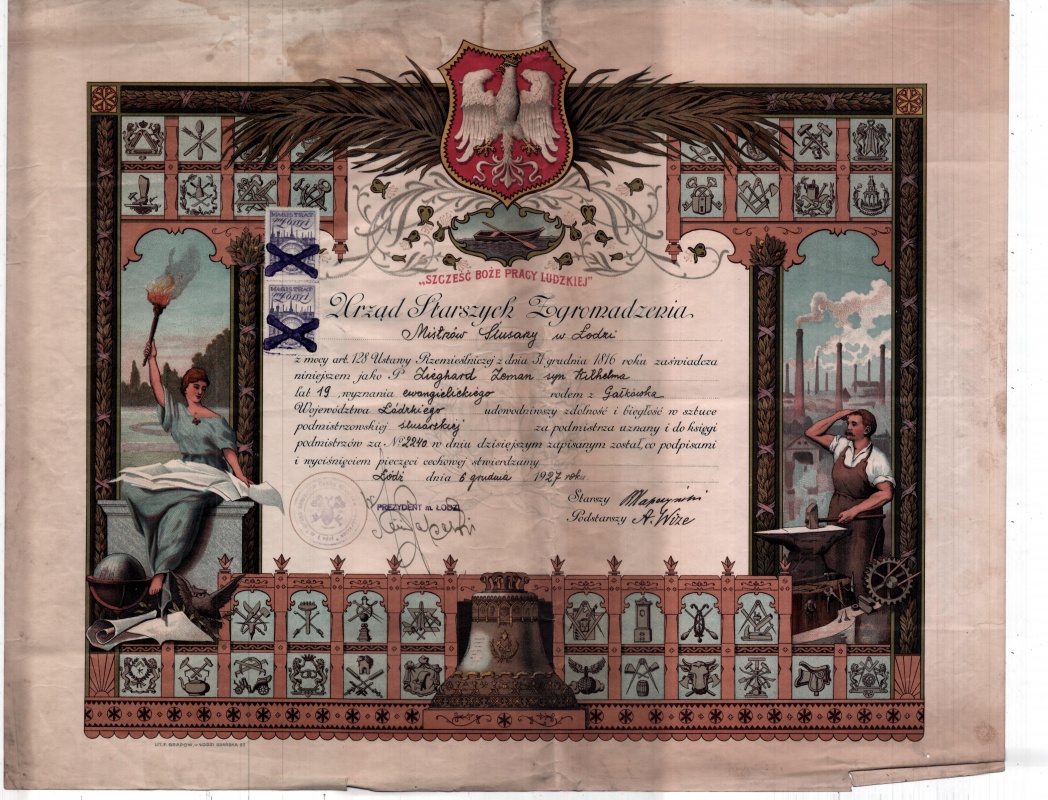 MAGISTRAT
MAGISTRAT
„SZCZĘŚĆ BOŻE PRACY LUDZKIEJ”
Urząd Starszych Zgromadzenia
Mistrzów Ślusarzy w Łodzi
z mocy art. 128 Ustawy Rzemieślniczej z dnia 31 grudnia 1816 roku zaświadcza
niniejszem jako P. Zieghard Zeman syn Wilhelma
lat 19 wyznania ewangielickiego rodem z Gałkówka
Województwa Łódzkiego udowodniwszy zdolność i biegłość w sztuce
podmistrzowskiej ślusarskiej za podmistrza uznany i do księgi
podmistrzów za № 2240 w dniu dzisiejszym zapisanym został, co podpisami
i wyciśnięciem pieczęci cechowej stwierdzamy
Łódź dnia 6 grudnia 1927 roku
Starszy
PREZYDENT m. ŁODZI
Podstarszy A. Wize
LIT. F. GRAPOW – ŁÓDŹ